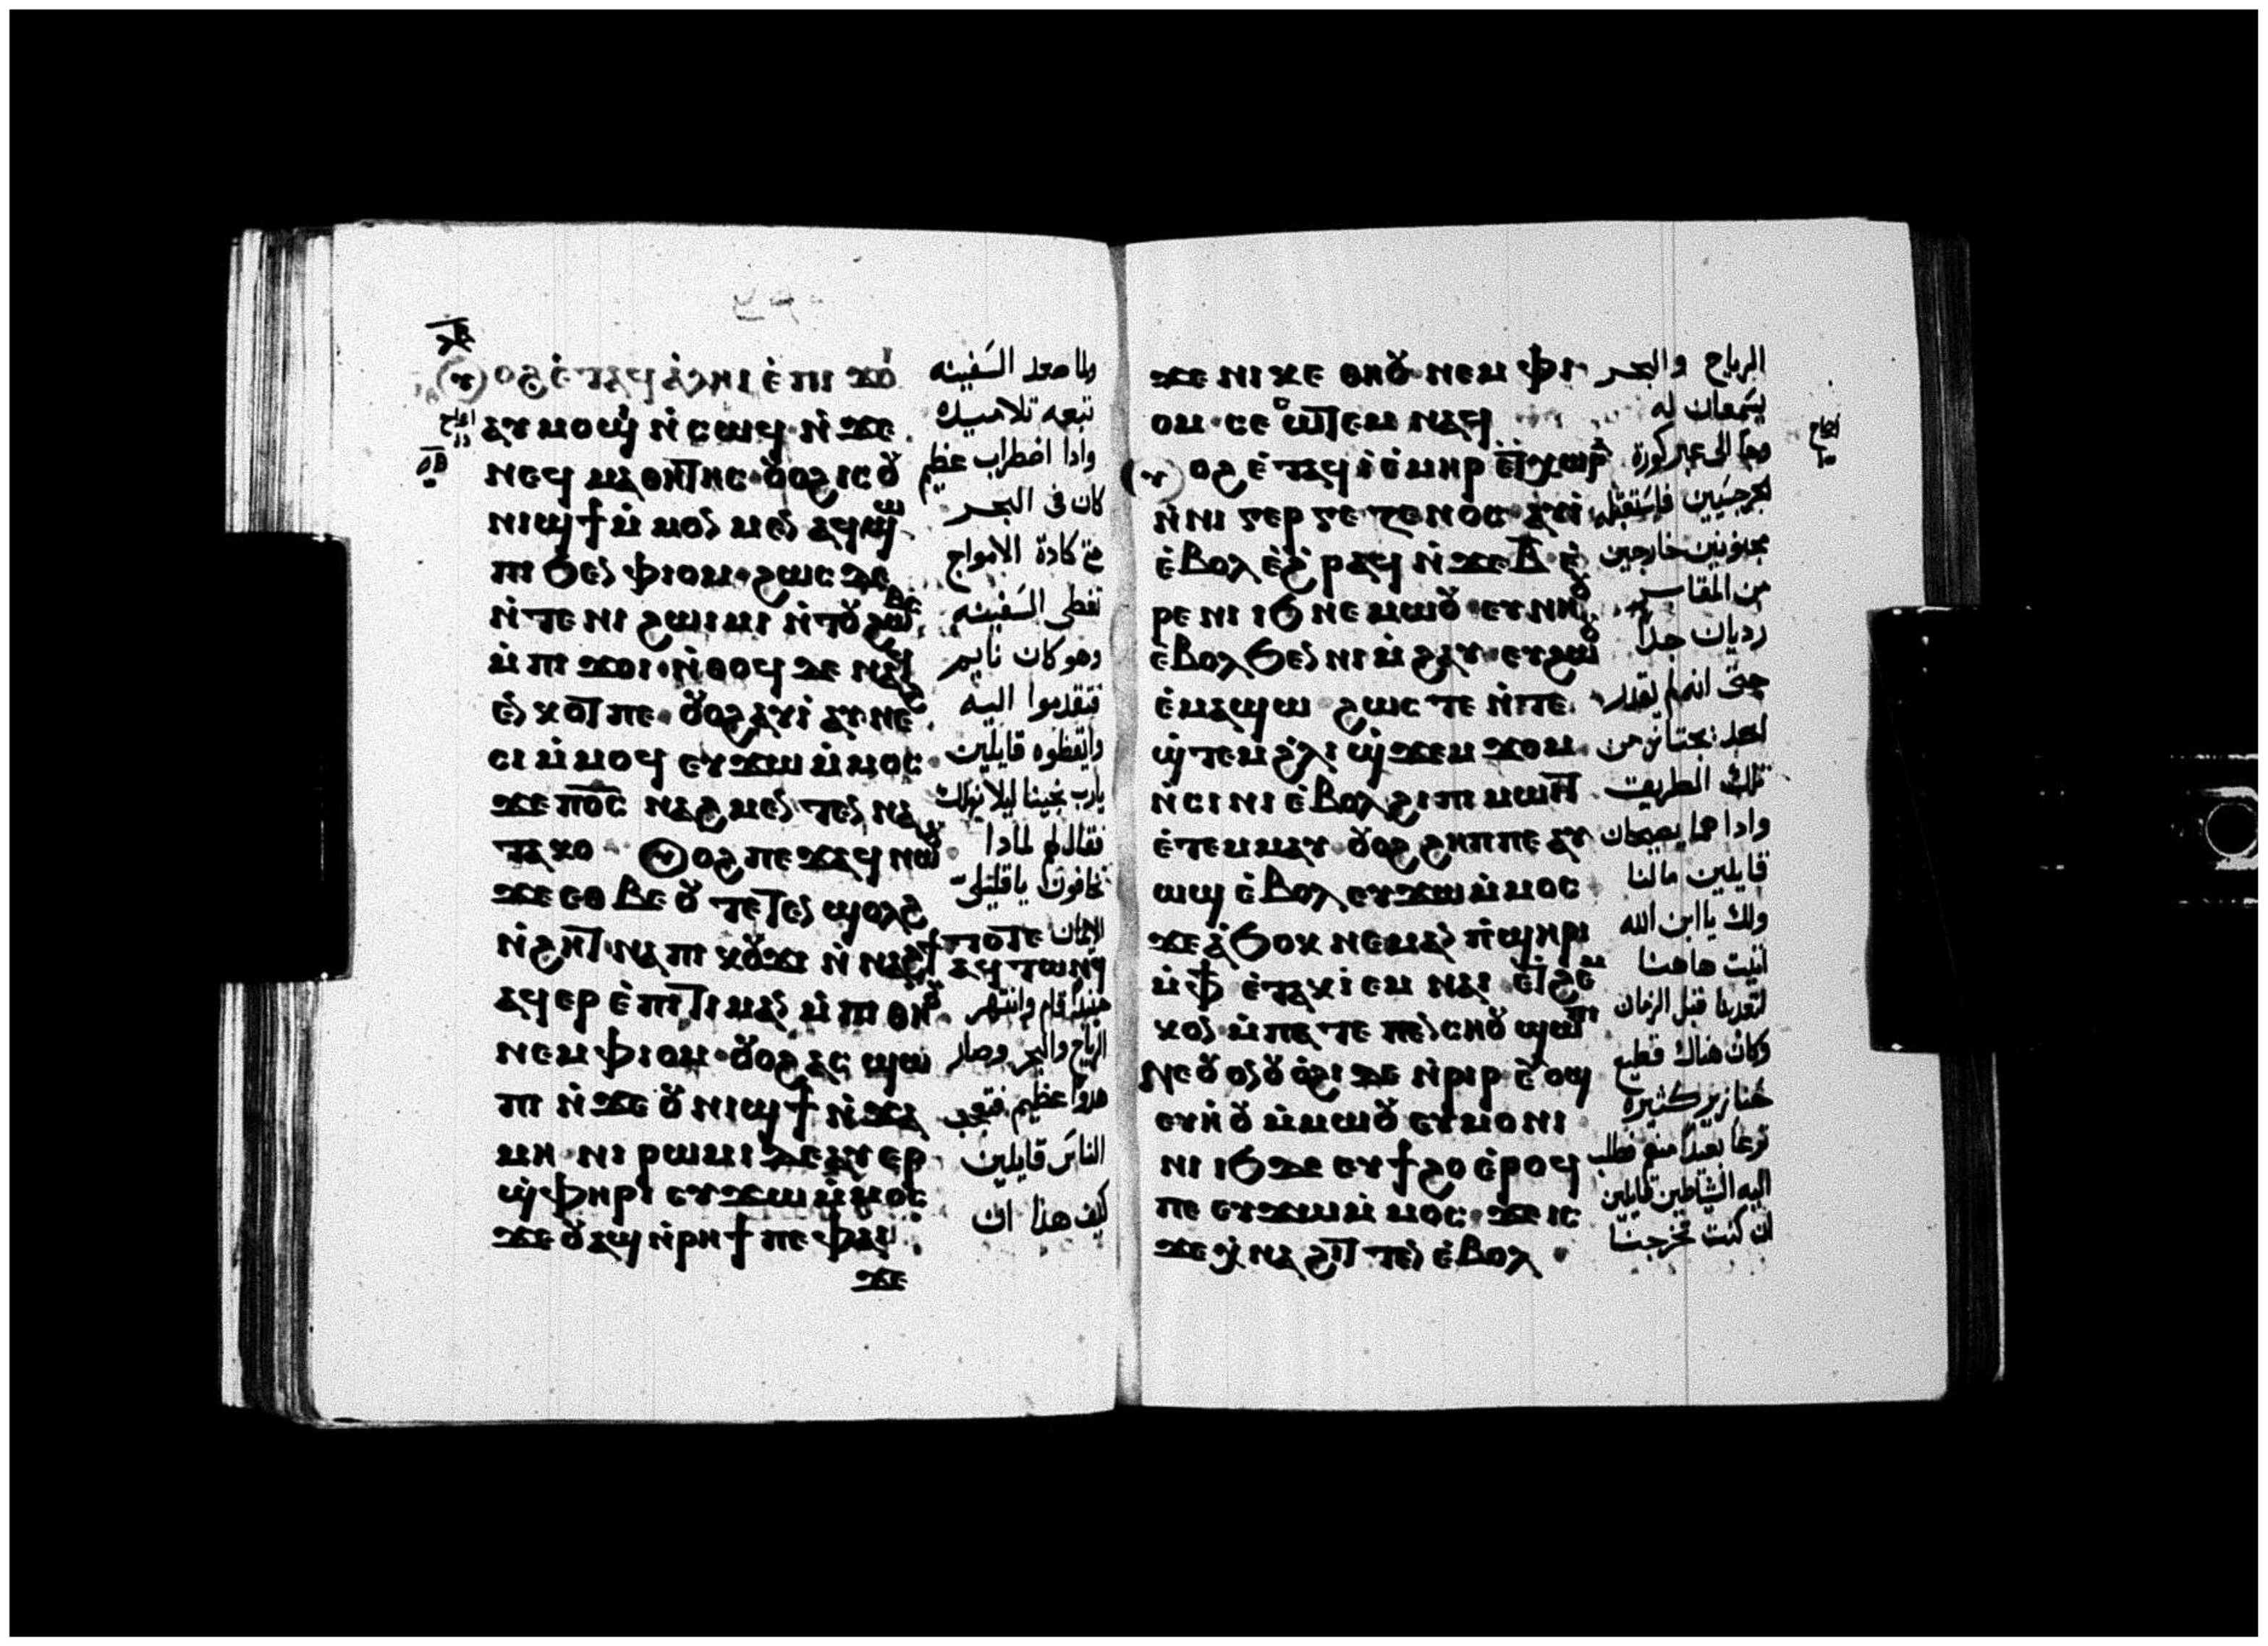 ⲕ̅ⲃ̅
ⲟⲩⲟϩ ⲉ̀ⲧⲁϥⲁ̀ⲗⲏⲓ ⲉ̀ⲡⲓ ϫⲟⲓ
ⲁⲩⲙⲟϣⲓ ⲛ̀ⲥⲱϥ ⲛ̀ϫⲉ
ⲛⲉϥ ⲙⲁⲑⲏⲧⲏⲥ ⲟⲩⲟϩ ⲓⲥ ⲟⲩ
ⲛⲓϣϯ ⲙ̀ⲙⲟⲛⲙⲉⲛ ⲁϥϣⲱ
ⲡⲓ ϧⲉⲛ ⲫⲓⲟⲙ ϩⲱⲥ ⲇⲉ
ⲛ̀ⲧⲉ ⲛⲓ ϩⲱⲓⲙⲓ ⲛ̀ⲧⲟⲩϩⲱⲃⲥ
ⲙ̀ⲡⲓ ϫⲟⲓ ⲛ̀ⲑⲟϥ ⲇⲉ ⲛⲁϥ
ⲉⲛⲕⲟⲧ ⲡⲉ ⲟⲩⲟϩ ⲁⲩⲓ̀ ⲁⲩⲛⲉϩ
ⲥⲓ ⲙ̀ⲙⲟϥ ⲉⲩϫⲱ ⲙ̀ⲙⲟⲥ
ϫⲉ ⲡⲟ̅ⲥ̅ ⲛⲁϩⲙⲉⲛ ⲧⲉⲛ ⲛⲁ
ⲧⲁⲕⲟ ⲟⲩⲟϩ ⲡⲉϫⲁϥ ⲛⲱⲟⲩ
ϫⲉ ⲉⲑⲃⲉ ⲟⲩ ⲧⲉⲧⲉⲛ ϣⲟⲗϩ
ⲛ̀ϩⲏⲧ ⲛⲁ ⲡⲓ ⲕⲟⲩϫⲓ ⲛ̀ ⲛⲁϩϯ ⲧⲟⲧⲉ
ⲁϥ ⲧⲱⲛϥ
ⲁϥⲉⲣ ⲉ̀ⲡⲓⲧⲓⲙⲁⲛ ⲙ̀ⲡⲓ ⲑⲏⲟⲩ
ⲛⲉⲙ ⲫⲓⲟⲙ ⲟⲩⲟϩ ⲁⲥ ϣⲱ
ⲡⲓ ⲛ̀ϫⲉ ⲟⲩ ⲛⲓϣϯ ⲛ̀ϫⲁ
ⲙⲏ ⲛⲓ ⲣⲱⲙⲓ ⲇⲉ ⲁⲩⲉⲣ
ϣ̀ⲫⲏⲣⲓ ⲉⲩϫⲱ ⲙ̀ⲙⲟⲥ
ϫⲉ ⲟⲩⲁϣ ⲛ̀ⲣⲏϯ ⲡⲉ ⲫⲁⲓ
ϫⲉ
ولما صعد السفينه
تبعه تلاميده
وادا اضطراب عظيم
كان في البحر
حتي كادة الامواج
تغطى السفينه
وهو كان نايم
فتقدموا اليه
وايقظوه قايلين
يارب نجينا ليلا نهلك
فقال لهم لمادا
تخافون يا قليلى
الايمان
حينئد قام وانتهر
الرياح والبحر وصار
هدوا عظيم فتعجب
الناس قايلين
كيف هذا ان
ϫⲉ ⲛⲓ ⲕⲉ ⲑⲏⲟⲩ ⲛⲉⲙ ⲫⲓ
ⲟⲙ ⲥⲉ ⲥⲱⲧⲉⲙ ⲛⲁϥ
ⲟⲩⲟϩ ⲉ̀ⲧⲁϥⲓ̀ ⲓ̀ⲙⲏⲣ ⲉ̀ⲧ ⲭⲱⲣⲁ
ⲛ̀ⲛⲓ ⲅⲉⲣⲅⲉⲥⲉⲛⲟⲥ ⲁⲩⲓ̀
ⲉ̀ⲃⲟⲗ ⲉϩⲣⲁϥ ⲛ̀ϫⲉ ⲃ̅ ⲉ̀
ⲣⲉ ⲛⲓ ⲓϧ ⲛⲉⲙⲱⲟⲩ ⲉⲩⲛⲏⲟⲩ
ⲉ̀ⲃⲟⲗ ϧⲉⲛ ⲛⲓ ⲙ̀ϩⲁⲩ ⲉⲩϩⲱⲟⲩ
ⲉ̀ⲙⲁϣⲱ ϩⲱⲥⲧⲉ ⲛ̀ⲧⲉ
ϣ̀ⲧⲉⲙ ϩⲗⲓ ϣ̀ϫⲉⲙ ϫⲟⲙ
ⲛ̀ⲥⲓⲛⲓ ⲉ̀ⲃⲟⲗ ϩⲓ ⲡⲓ ⲙⲱⲓⲧ
ⲉ̀ⲧⲉⲙⲙⲁⲩ ⲟⲩⲟϩ ϩⲏⲡⲡⲉ ⲁⲩ
ⲱϣ ⲉ̀ⲃⲟⲗ ⲉⲩϫⲱ ⲙ̀ⲙⲟⲥ
ϫⲉ ⲁ̀ϧⲟⲕ ⲛⲉⲙⲁⲛ ⲡ̀ϣⲏⲣⲓ
ⲙ̀ⲫϯ ⲉ̀ⲧⲁⲕⲓ̀ ⲉⲙⲛⲁⲓ ⲉ̀ⲧϩⲉⲙ
ⲕⲟⲛ ⲙ̀ⲡⲁⲧⲉ ⲡⲉⲛⲥⲏⲟⲩ ϣⲱⲡⲓ
ⲛⲉ ⲟⲩⲟⲛ ⲟⲩⲟ̀ϩⲓ ⲇⲉ ⲛ̀ⲣⲓⲣ ⲉⲩⲟϣ
ⲉⲩⲏ̀ⲟⲩ ⲙ̀ⲙⲱⲟⲩ ⲉⲩⲙⲟⲛⲓ
ⲛⲓ ⲓϧ ⲇⲉ ⲉⲩϯϩⲟ ⲉ̀ⲣⲟϥ
ⲡⲉ ⲉⲩϫⲱ ⲙ̀ⲙⲟⲥ ϫⲉ ⲓⲥ
ϫⲉ ⲭ̀ⲛⲁ ϩⲓⲧⲧⲉⲛ ⲉ̀ⲃⲟⲗ
الرياح والبحر
يسمعان له
وجا الى عبر كورة
الجرجسيين فاستقبله
مجنونين خارجين
من المقابر
رديان جدا
حتى انه لم يقدر
احد يجتاز من
تلك الطريق
وادا هما يصيحان
قايلين مالنا
ولك يا ابن الله
اتيت هاهنا
لتعدبنا قبل الزمان
وكان هناك قطيع
خنازير كثيرة
ترعا بعيدا منهم فطلب
اليه الشياطين قايلين
ان كنت تخرجنا